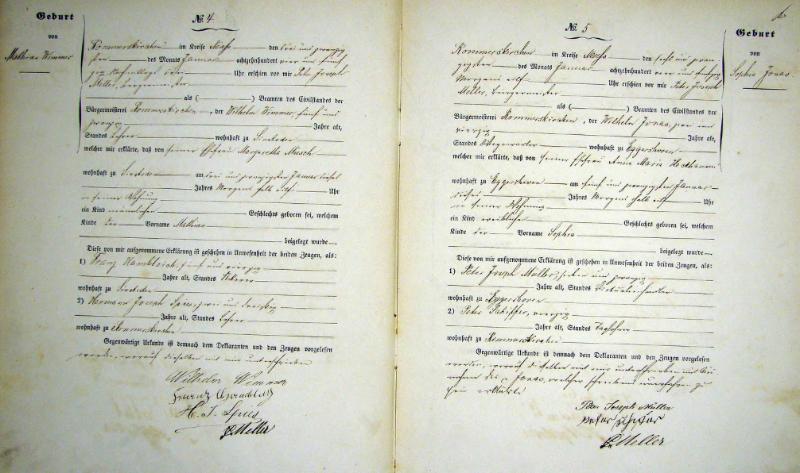 Geburt
von
Mathias Wimmer
№ 4.
Rommerskirchen im Kreise Neuss den drei und zwanzig
sten des Monats Januar achtzehnhundert vier und fünf
zig erschien vor mir Peter Joseph
Möller, Bürgermeister
als ( ) Beamten des Civilstandes der
Bürgermeisterei Rommerskirchen, der Wilhelm Wimmer, fünf und
zwanzig Jahre alt,
Standes wohnhaft zu
welcher mir erklärte, daß von seiner Ehefrau Margaretha
wohnhaft zu am drei und zwanzigsten Januar
Jahres Morgens halb Uhr
in seiner Wohnung
ein Kind männlichen Geschlechts geboren sei, welchem
Kinde der Vorname Mathias
beigelegt wurde
Diese von mir aufgenommene Erklärung ist geschehen in Anwesenheit der beiden Zeugen, als:
1) Franz fünf und vierzig
Jahre alt, Standes
wohnhaft zu
2) Hermann Joseph Spies, zwei und dreißig
Jahre alt, Standes
wohnhaft zu Rommerskirchen
Gegenwärtige Urkunde ist demnach dem Deklaranten und den Zeugen vorgelesen
worden, worauf dieselben mit mir unterschrieben
Wilhelm Wimmer
Franz
H. J. Spies
P. Möller
№ 5
Rommerskirchen im Kreise Neuss den sechs und zwan
zigsten des Monats Januar achtzehnhundert vier und fünfzig
Morgens elf Uhr erschien vor mir Peter Joseph
Möller, Bürgermeister
als ( ) Beamten des Civilstandes der
Bürgermeisterei Rommerskirchen, der Wilhelm Jonas, zwei und
vierzig Jahre alt,
Standes wohnhaft zu Eggershoven
welcher mir erklärte, daß von seiner Ehefrau Anna Maria
wohnhaft zu Eggershoven am fünf und zwanzigsten Januar
dieses Jahres Morgens halb Uhr
in seiner Wohnung
ein Kind weiblichen Geschlechts geboren sei, welchem
Kinde der Vorname Sophia
beigelegt wurde
Diese von mir aufgenommene Erklärung ist geschehen in Anwesenheit der beiden Zeugen, als:
1) Peter Joseph Müller, und zwanzig
Jahre alt, Standes
wohnhaft zu Eggershoven
2) Peter vierzig
Jahre alt, Standes Taglöhner
wohnhaft zu Rommerskirchen
Gegenwärtige Urkunde ist demnach dem Deklaranten und den Zeugen vorgelesen
worden, worauf dieselben mit mir unterschrieben mit Aus
nahme des p. Jonas, welcher Schreibens unerfahren zu
sein erklärte
Peter Joseph Müller
Peter
P. Möller
Geburt
von
Sophia Jonas.